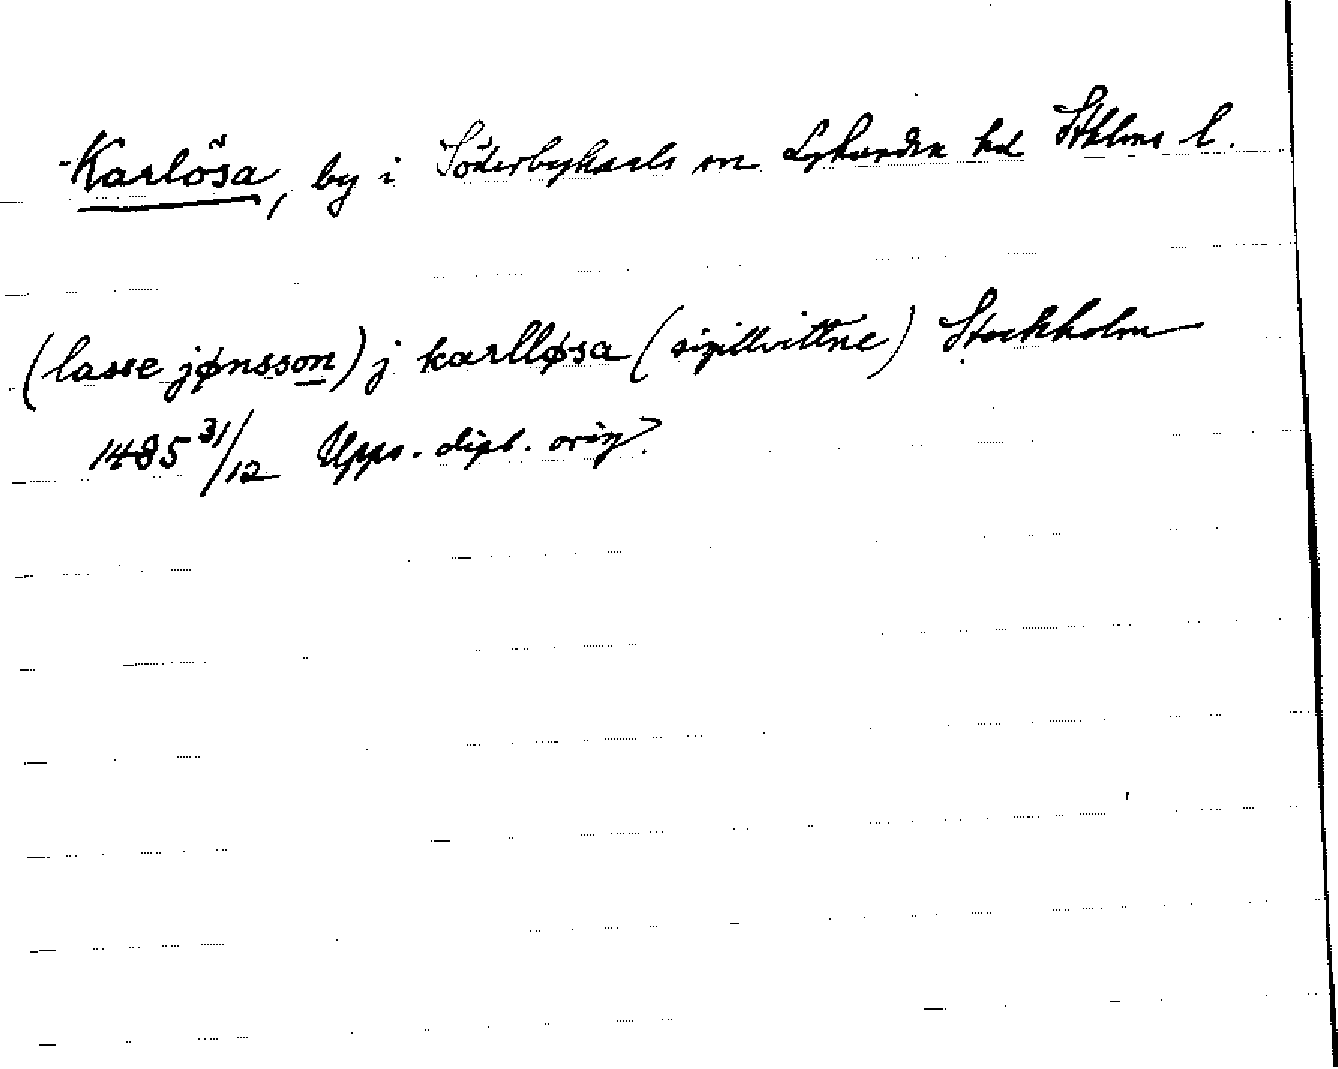 Karlösa, by i Söderbykarls sn Lyhundra hd Sthlms l.
(lasse jønsson) j karlløsa (sigillvittne) Stockholm
1485 31/12 Upps. dipl. orig.